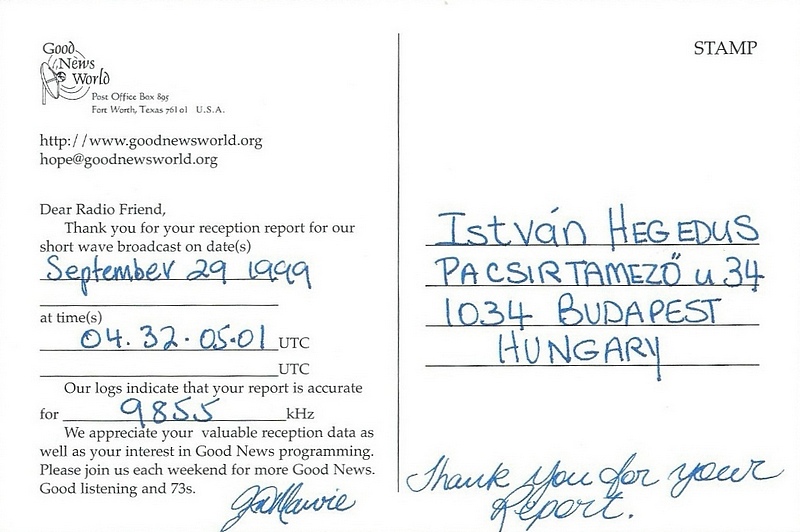 Good
News
World
Post Office Box 895
Fort Worth, Texas 76101 U.S.A.
http://www.goodnewsworld.org
hope@goodnewsworld.org
Dear Radio Friend,
Thank you for your reception report for our
short wave broadcast on date(s)
September 29 1999
at time(s)
04.32.05.01 UTC
UTC
Our logs indicate that your report is accurate
for 9855 kHz
We appreciate your valuable reception data as
well as your interest in Good News programming.
Please join us each weekend for more Good News.
Good listening and 73s.
STAMP
István HEGEDUS
PACSIRTAMEZŐ u 34
1034 BUDAPEST
HUNGARY
Thank you for your
report.